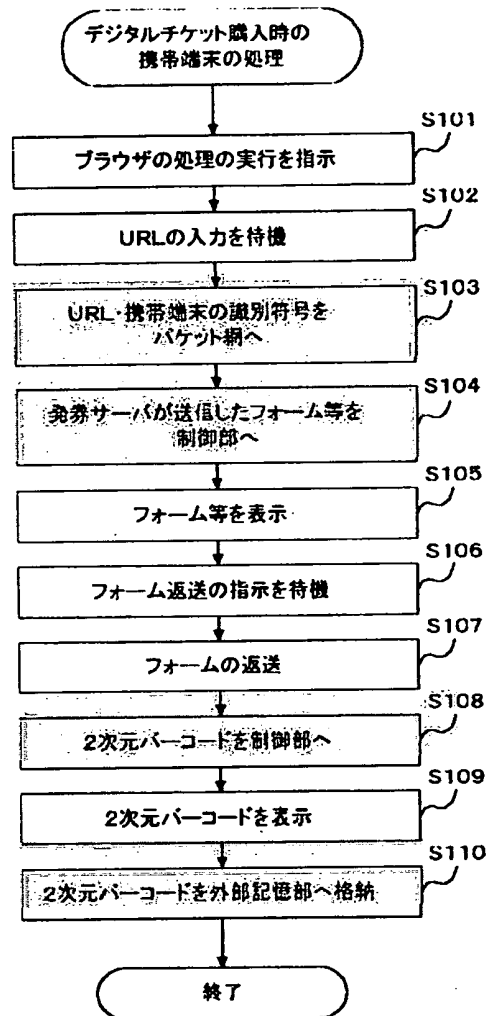 デジタルチケット購入時の
携帯端末の処理
S101
ブラウザの処理の実行を指示
S102
URLの入力を待機
S103
URL・携帯端末の識別符号を
パケット網へ
S104
発券サーバが送信したフォーム等を
制御部へ
S105
フォーム等を表示
S106
フォーム返送の指示を待機
S107
フォームの返送
S108
2次元バーコードを制御部へ
S109
2次元バーコードを表示
S110
2次元バーコードを外部記憶部へ格納
終了